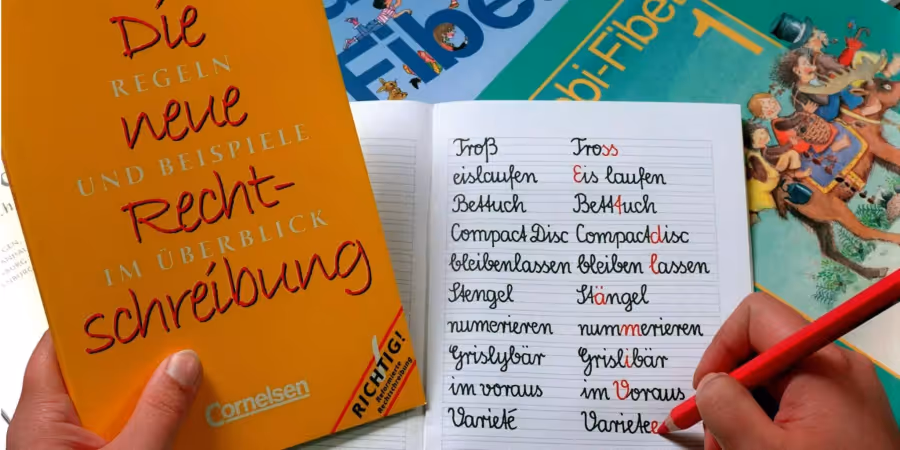 Die
REGELN
neue
UND BEISPIELE
Recht-
IM ÜBERBLICK
schreibung
Cornelsen
RICHTIG!
Reformierte
Rechtschreibung
Fibel
bi-Fibel
1
Troß Tross
eislaufen Eis laufen
Bettuch Betttuch
Compact Disc Compactdisc
bleibenlassen bleiben lassen
Stengel Stängel
numerieren nummerieren
Grislybär Grislibär
im voraus im Voraus
Varieté Varietee